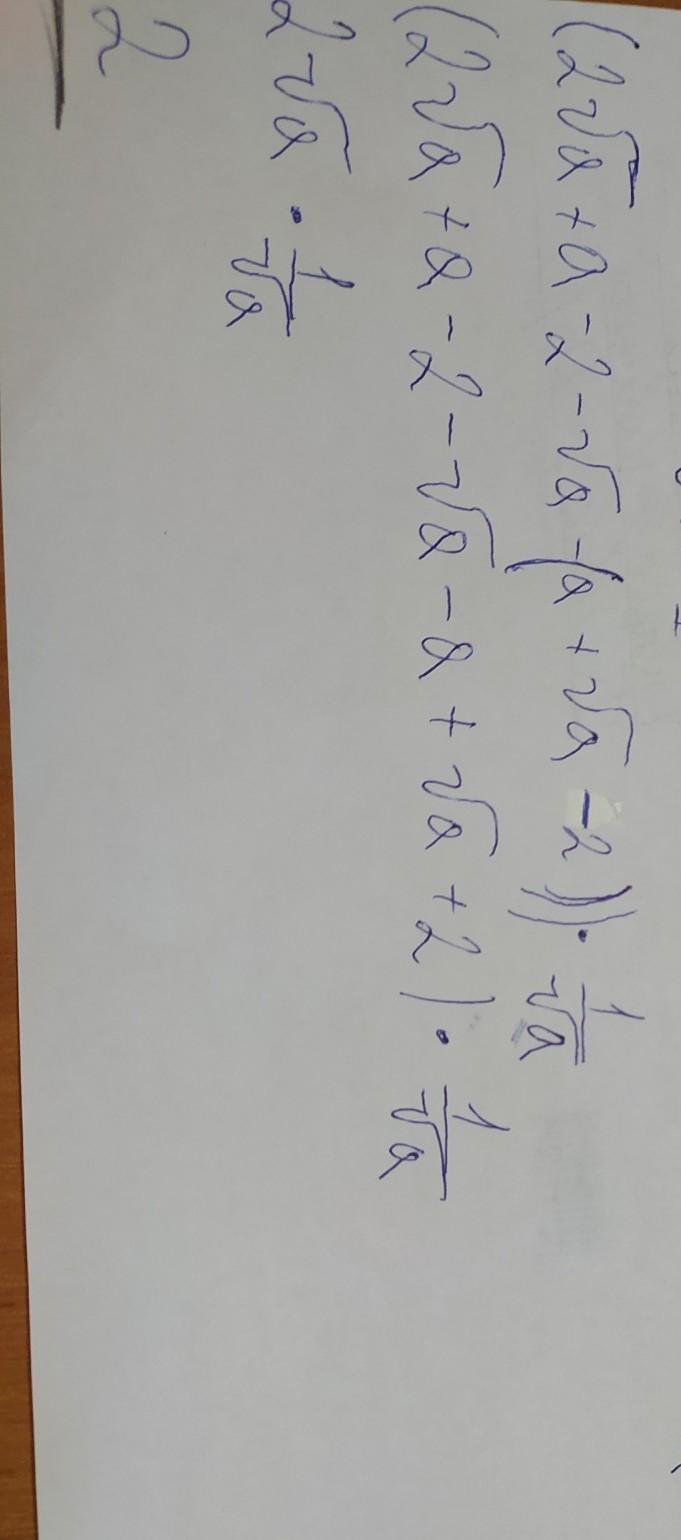 (2√a + a - 2 - √a - (a + √a - 2)) · 1/√a
(2√a + a - 2 - √a - a + √a + 2) · 1/√a
2√a · 1/√a
2